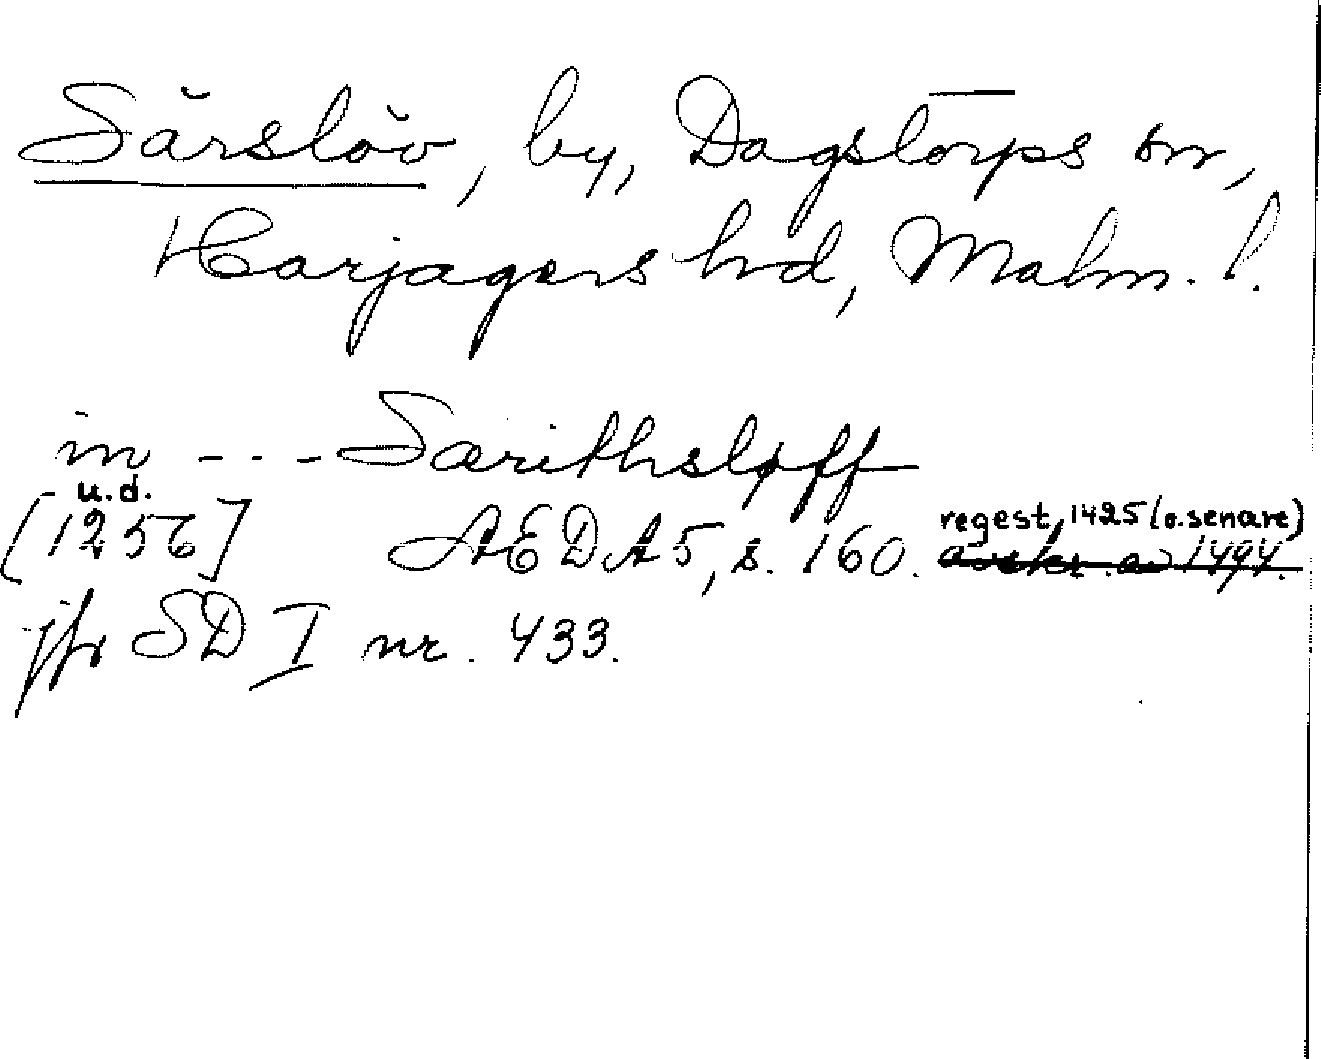 Särslöv, by, Dagstorps sn,
Harjagers hd, Malm. l.
in - - - Särithsløff
u.d.
[1256] AEDA 5, s. 160. regest, 1425 (o. senare)
avskr. av 1494.
jfr SD I nr. 433.